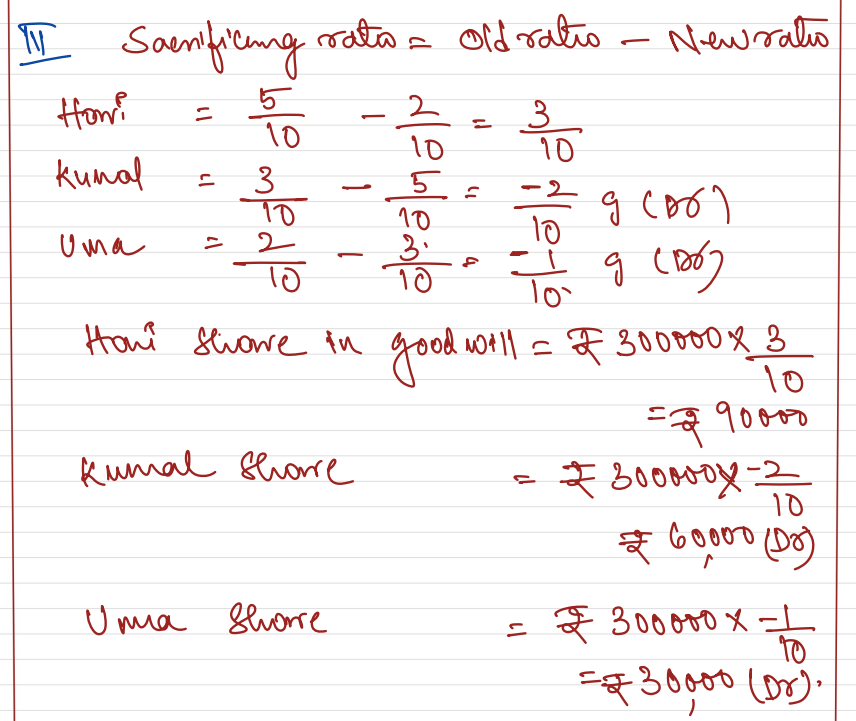 III Sacrificing ratio = Old ratio - New ratio
Hari = 5/10 - 2/10 = 3/10
Kunal = 3/10 - 5/10 = -2/10 g (Dr)
Uma = 2/10 - 3/10 = -1/10 g (Dr)
Hari Share in goodwill = ₹ 300000 x 3/10
= ₹ 90000
Kunal Share = ₹ 300000 x -2/10
₹ 60,000 (Dr)
Uma Share = ₹ 300000 x -1/10
= ₹ 30,000 (Dr).